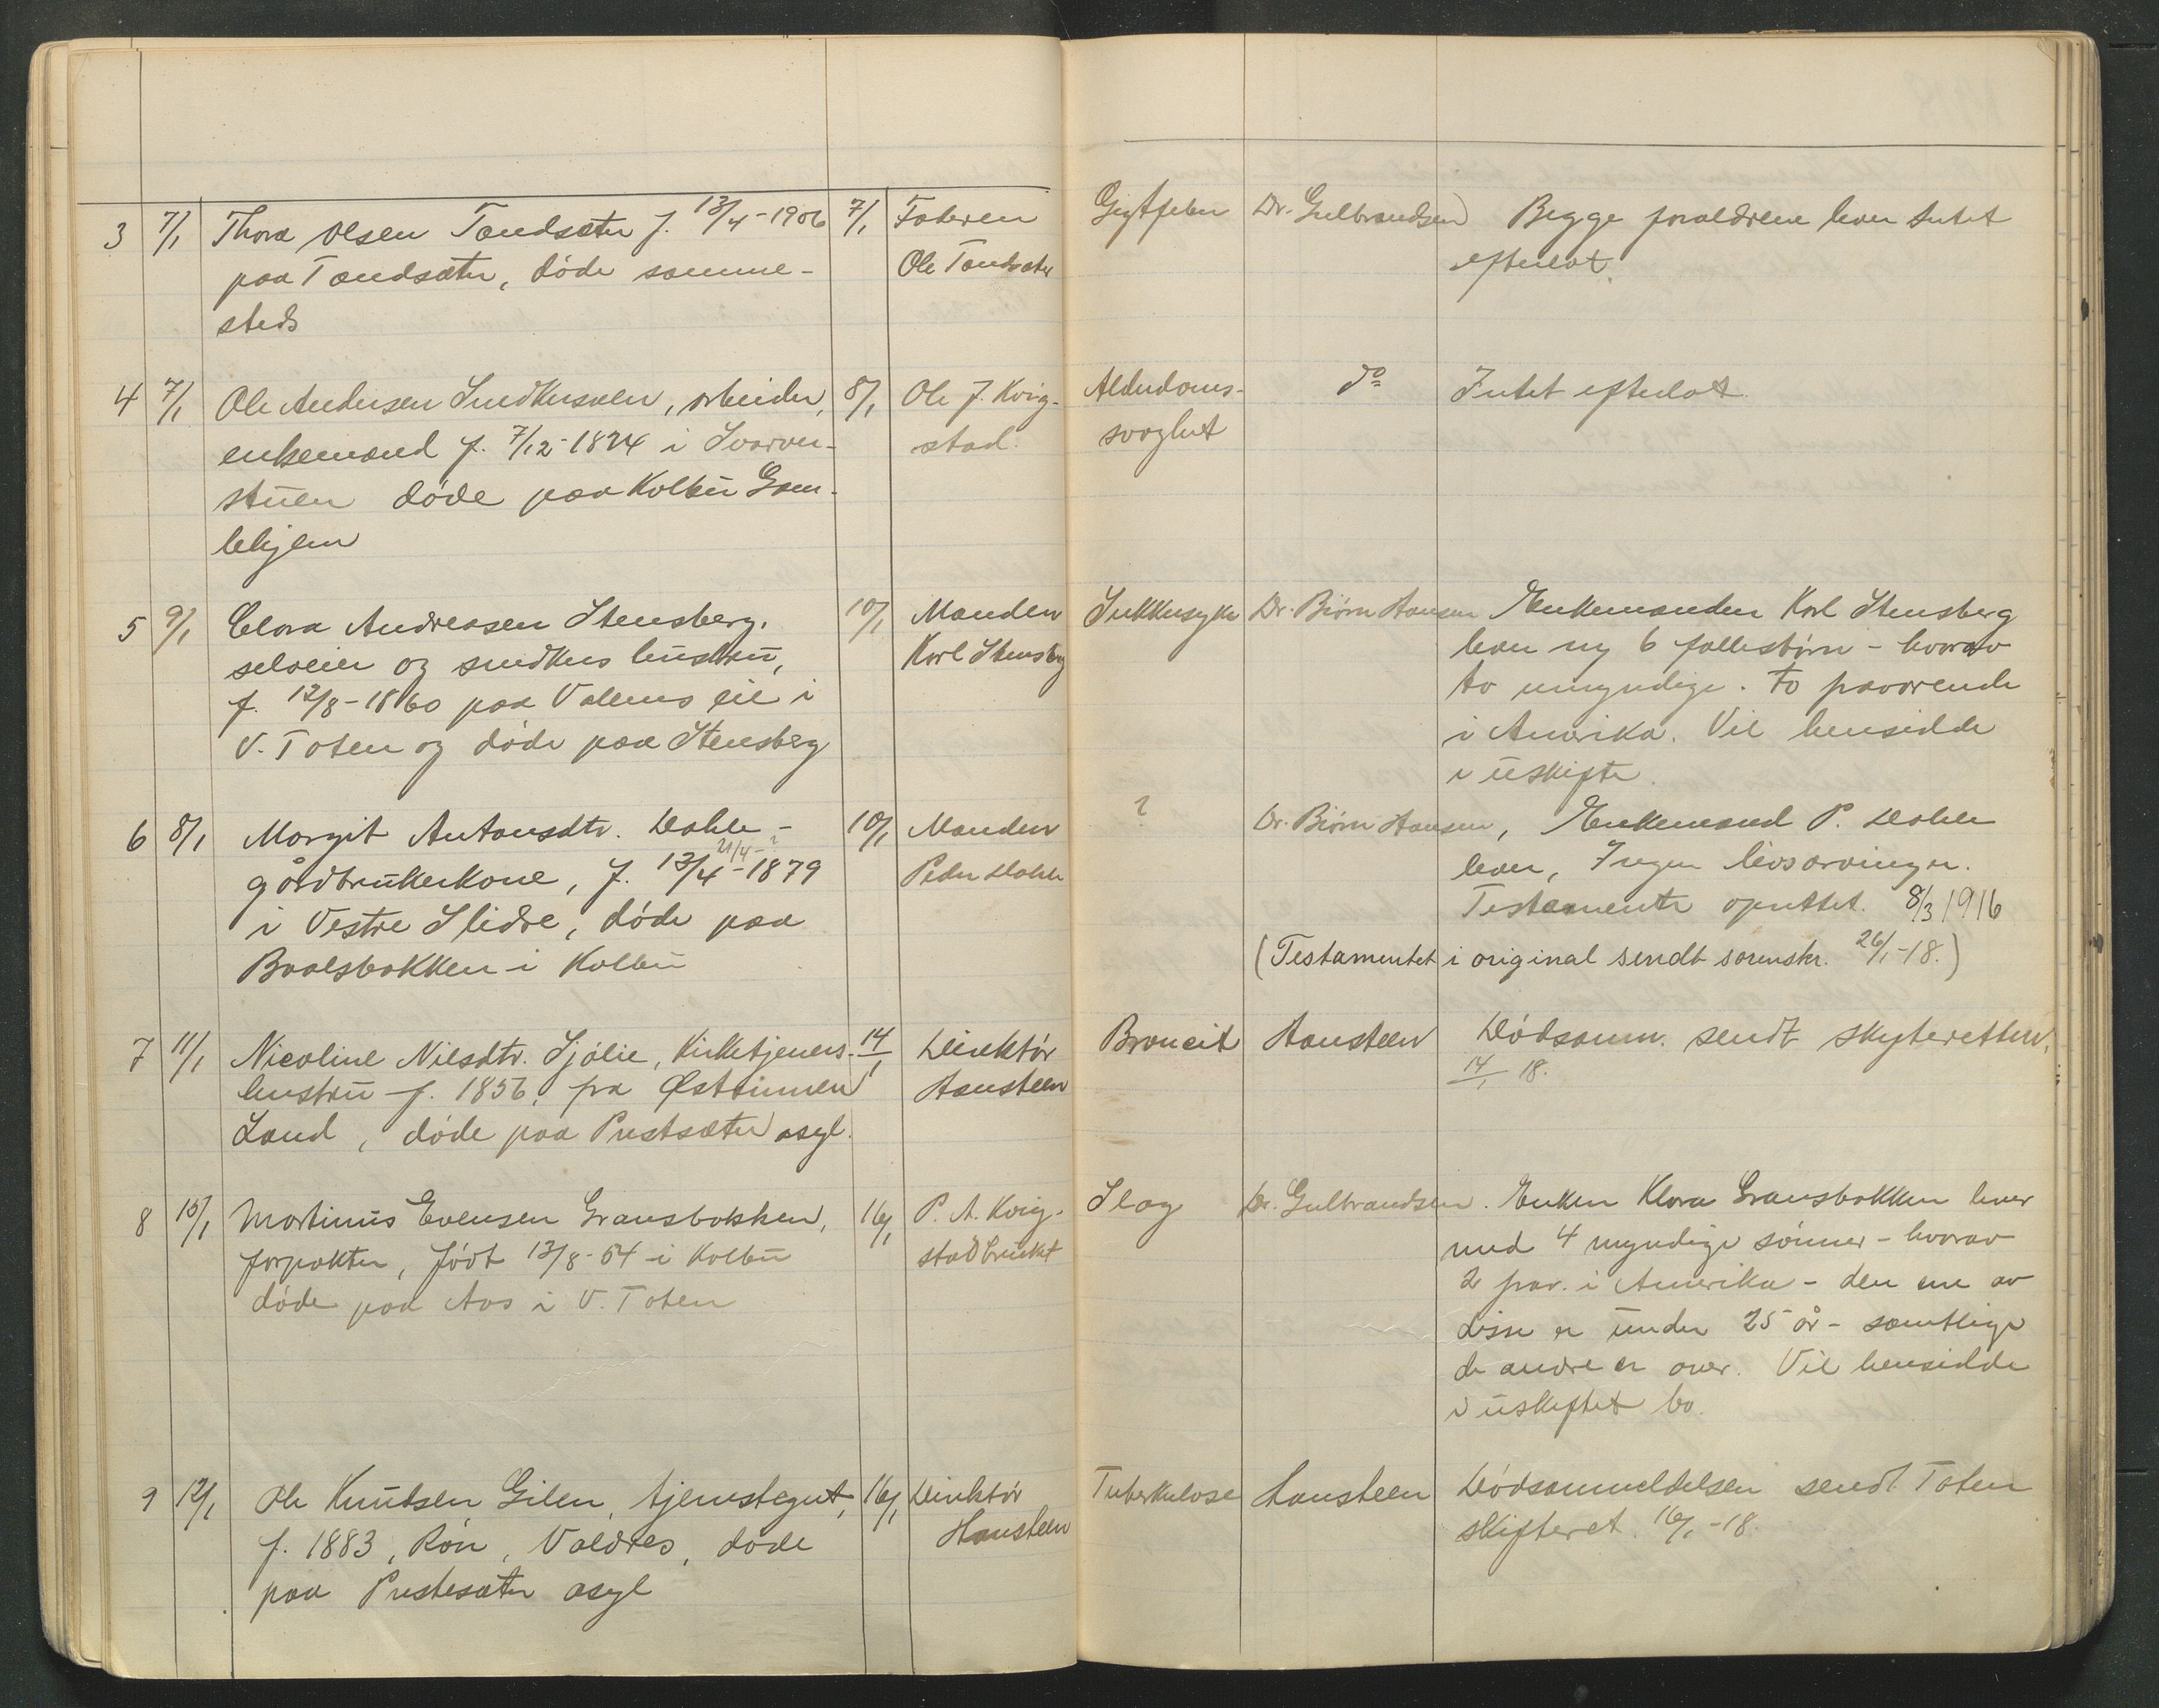 3 7/1 Thora Olsen Tandsæter f. 13/4-1906 7/1 Faderen Gigtfeber Dr. Gulbrandsen Begge forældrene lever Intet
paa Tandsæter, döde samme- Ole Tandsæter efterlot.
steds
4 7/1 Ole Andersen Snedkersveen, arbeider, 8/1 Ole J. Kvig- Alderdoms- do Intet efterlot.
enkemand f. 7/12-1824 i Svarver- stad. svaghet
stuen döde paa Kolbu Gam-
lehjem
5 9/1 Clara Andreasen Stensberg, 10/1 Manden Sukkersyke Dr. Biörn Hansen Enkemanden Karl Stensberg
selveier og snedkers hustru, Karl Stensberg lever og 6 fællesbörn - hvorav
f. 12/8-1860 paa Valens eie i to umyndige. To fraværende
V. Toten og döde paa Stensberg i Amerika. Vil hensidde
i uskifte.
6 8/1 Margit Antonsdtr. Dahle - 10/1 Manden ? Dr. Biörn Hansen, Enkemand P. Dahle
21/4-?
gårdbrukerkone, f. 13/4-1879 Peder Dahle lever, Ingen livsarvinger.
i Vestre Slidre, döde paa Testamente oprettet. 8/3 1916
Baalsbakken i Kolbu (Testamentet i original sendt sorenskr. 26/1-18.)
7 11/1 Nicoline Nilsdtr. Sjölie, Kirketjeners- 14/1 Direktör Broncit Hansteen Dödsanm. sendt skifteretten,
hustru f. 1856, fra Østsinnen Hansteen 14/1 18.
Land, döde paa Prestsæter asyl.
8 15/1 Martinus Evensen Gransbakken, 16/1 P. A. Kvig- Slag Dr. Gulbrandsen. Enken Klara Gransbakken lever
forpakter, födt 13/8-54 i Kolbu stadbruket med 4 myndige sönner - hvorav
döde paa Aas i V. Toten 2 frav. i Amerika - den ene av
disse er under 25 år - samtlige
de andre er over. Vil hensidde
i uskiftet bo.
9 12/1 Ole Knudsen Gilen, tjenstegut, 16/1 Direktör Tuberkulose Hansteen Dödsanmeldelsen sendt Toten
f. 1883, Rön, Valdres, döde Hansteen skifteret. 16/1-18.
paa Prestesæter asyl